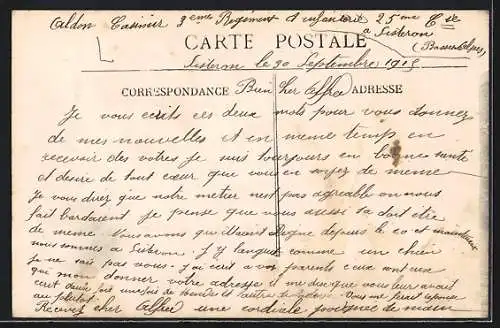 Caldon Casimir 3eme Regiment d'infanterie 25me Cie
a Sisteron
(Basses Alpes)
CARTE POSTALE
Sisteron le 30 Septembre 1915
CORRESPONDANCE Bien Cher Alfred ADRESSE
Je vous ecrits ces deux mots pour vous donner
de mes nouvelles et en meme temps en
recevoir des votres je suis toujours en bonne sante
et desire de tout cœur que vous en soyez de meme
Je vous direz que notre metier n'est pas agreable on nous
fait je pense que vous aussi sa doit etre
de meme nous avons Digne depuis le 20 et maintenant
nous sommes a Sisteron J'y langui comme un chien
je ne sais pas vous j'ai ecrit a vos parents ceux ont
qui mon donner votre adresse il me dise que vous leur avait
ecrit deux fois une fois de et l'autre
au
Recevez cher Alfred une cordiale poignee de main